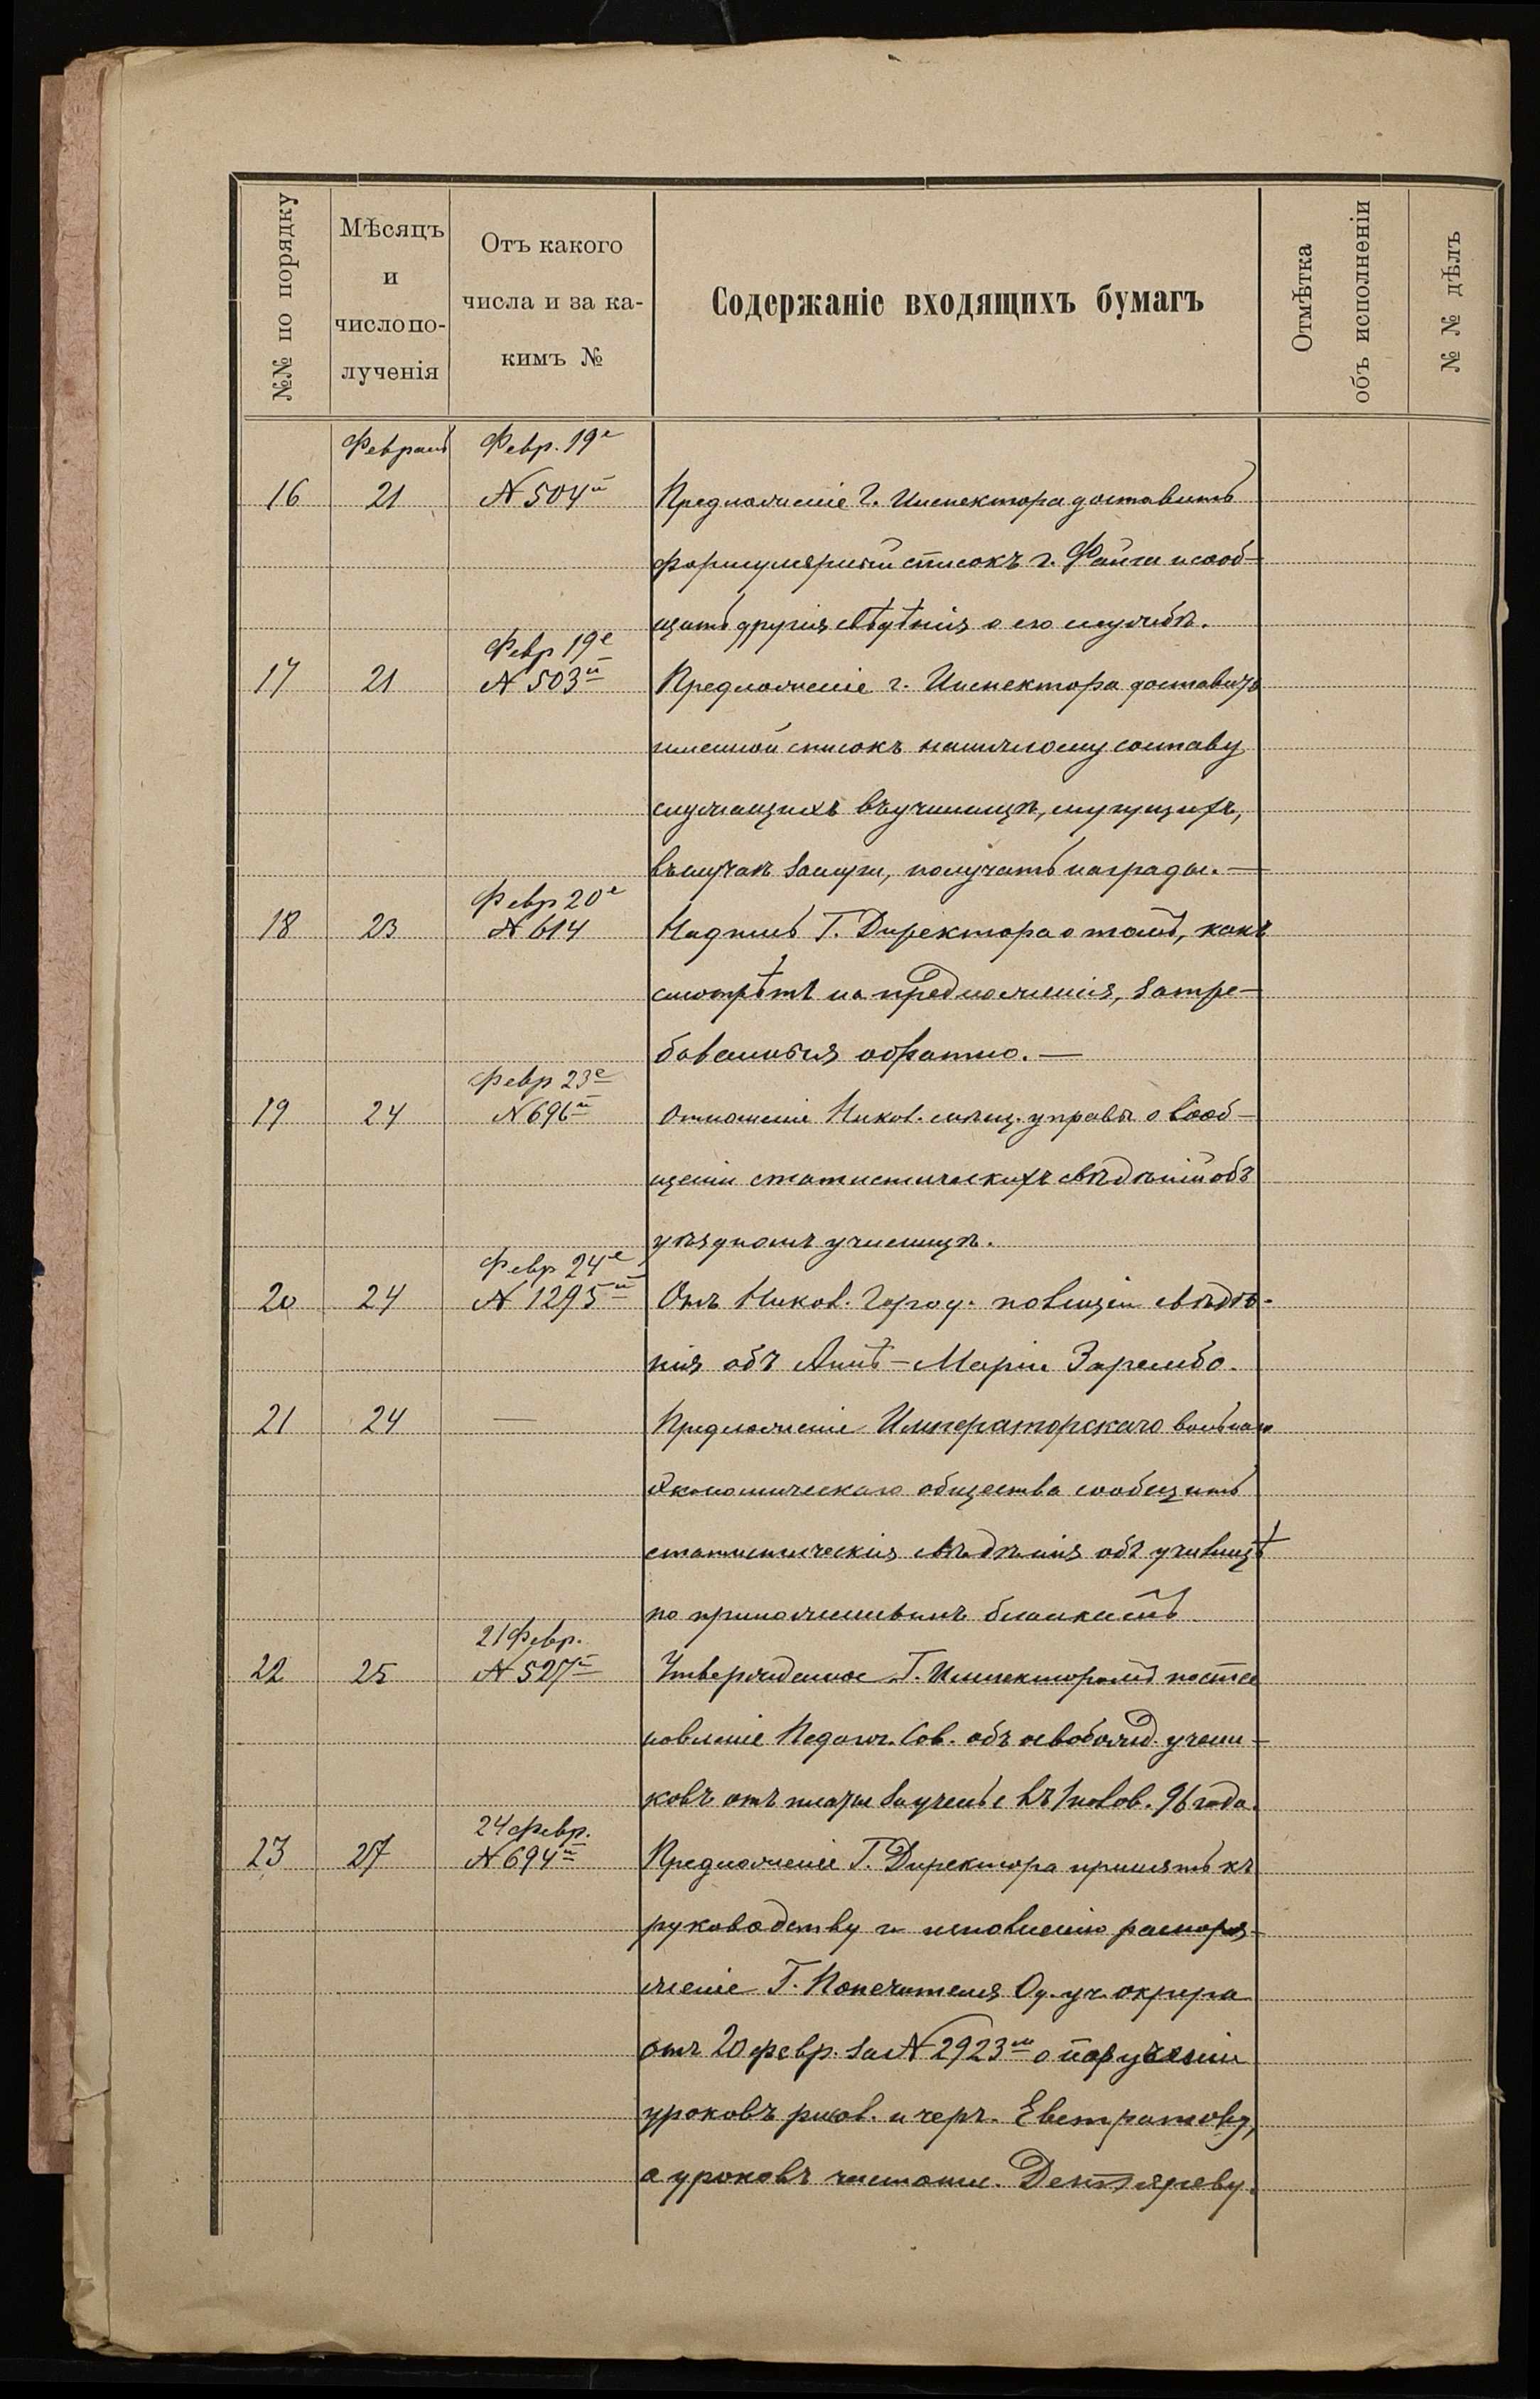 №№ по порядку
Мѣсяцъ
и
число по-
лученія
Отъ какого
числа и за ка-
кимъ №
Содержаніе входящихъ бумагъ
Отмѣтка
объ исполненіи
№ № дѣлъ
Февраль Февр. 19е
16 21 № 504й Предложеніе Г. Инспектора доставить
формулярный списокъ г. и сооб-
щать другія свѣдѣнія о его службѣ.
Февр 19е
17 21 № 503й Предложеніе г. Инспектора доставить
именной списокъ наличному составу
служащихъ въ училищѣ, могущихъ,
въ случаѣ заслуги, получать награды. —
Февр 20е
18 23 № 614 Надпись Г. Директора о томъ, какъ
смотрѣть на предложенія, затре-
бованныя обратно. —
Февр 23е
19 24 № 696й Отношеніе Никол. мѣщ. управы о сооб-
щеніи статистическихъ свѣдѣній объ
уѣздномъ училищѣ.
Февр 24е
20 24 № 1295й Отъ Никол. Город. полиціи свѣдѣ-
нія объ Аннѣ-Маріи Зарембо.
21 24 — Предложеніе Императорскаго вольнаго
экономическаго общества сообщить
статистическія свѣдѣнія объ училищѣ
по приложеннымъ бланкамъ
21 Февр.
22 25 № 527й Утвержденное Г. Инспекторомъ поста
новленіе Педагог. Сов. объ освобожд. учени-
ковъ отъ платы за ученье въ 1 полов. 96 года.
24 февр.
23 27 № 694й Предложеніе Г. Директора принять къ
руководству и исполненію распоря-
женіе Г. Попечителя Од. уч. округа
отъ 20 февр. за № 2923м о порученіи
уроковъ рисов. и черч. Евстратову,
а уроковъ чистопис. Дегтяреву.